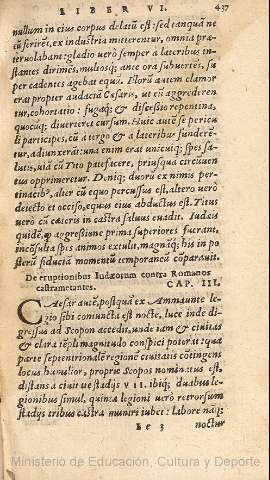 LIBER VI. 437
nullum in eius corpus delatũ est: sed tanquã ne
cũ feriret, ex industria mitterentur, omnia præ
teruolabant: gladio verò semper a lateribus in-
stantes dirimẽs, multosq; ante ora subuertẽs, su
per cadentes agebat equũ. Illorũ autem clamor
erat propter audaciã Cæsaris, ut eũ aggrederen
tur, cohortatio: fugaq; & discessio repentina,
quocuq; diuerteret cursum. Huic autẽ se pericu
li participes, cũ a tergo & a lateribus funderẽ-
tur, adiunxerãt: una enim erat unicuiq; spes sa-
lutis, uiã cũ Tito patefacere, priusquã circuuen
tus opprimeretur. Deniq; duorũ ex nimis per-
tinacibꝰ, alter cũ equo percussus est, altero verò
deiecto et occiso, equus eius abductus est. Titus
verò cũ cæteris in castra saluus euadit. Iudæis
quidẽ, ex aggressione prima superiores fuerant,
inconsulta spes animos extulit, magnãq; his in po
sterũ fiduciã momentũ temporaneũ cõparauit.
De eruptionibus Iudæorum contra Romanos
castrametantes. CAP. III.
CAesar autẽ, postquã ex Ammaunte le-
gio sibi coniuncta est nocte, luce inde di-
gressus ad Scopon accedit, unde iam & ciuitas
& clara tẽpli magnitudo conspici poterat: qua
parte septentrionale regione ciuitatis cõtingens
locus humilior, proprie Scopos nominatus est,
distans a ciuitate stadijs VII. ibiq; duabus le-
gionibus simul, quintæ legioni uerò retrorsum
stadijs tribus castra muniri iubet: labore naq;
Ee 3 noctur
Ministerio de Educación, Cultura y Deporte